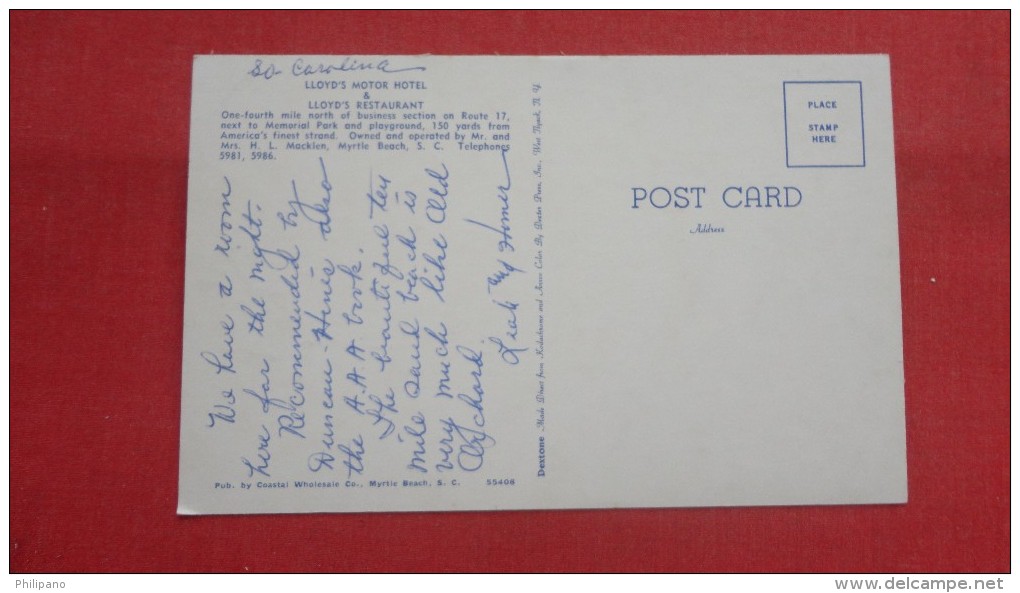 So Carolina
LLOYD'S MOTOR HOTEL
&
LLOYD'S RESTAURANT
One-fourth mile north of business section on Route 17,
next to Memorial Park and playground, 150 yards from
America's finest strand. Owned and operated by Mr. and
Mrs. H. L. Macklen, Myrtle Beach, S. C. Telephones
5981, 5986.
We have a room
here for the night.
Recommended by
Duncan-Hines also
the A.A.A book.
The beautiful ten
mile sand beach is
very much like Old
Orchard.
Leah and Homer
Pub. by Coastal Wholesale Co., Myrtle Beach, S. C. 55408
Dextone Made Direct from Kodachrome and Ansco Color By Dexter Press, Inc., West Nyack, N. Y.
PLACE
STAMP
HERE
POST CARD
Address
Philipano
www.delcampe.net